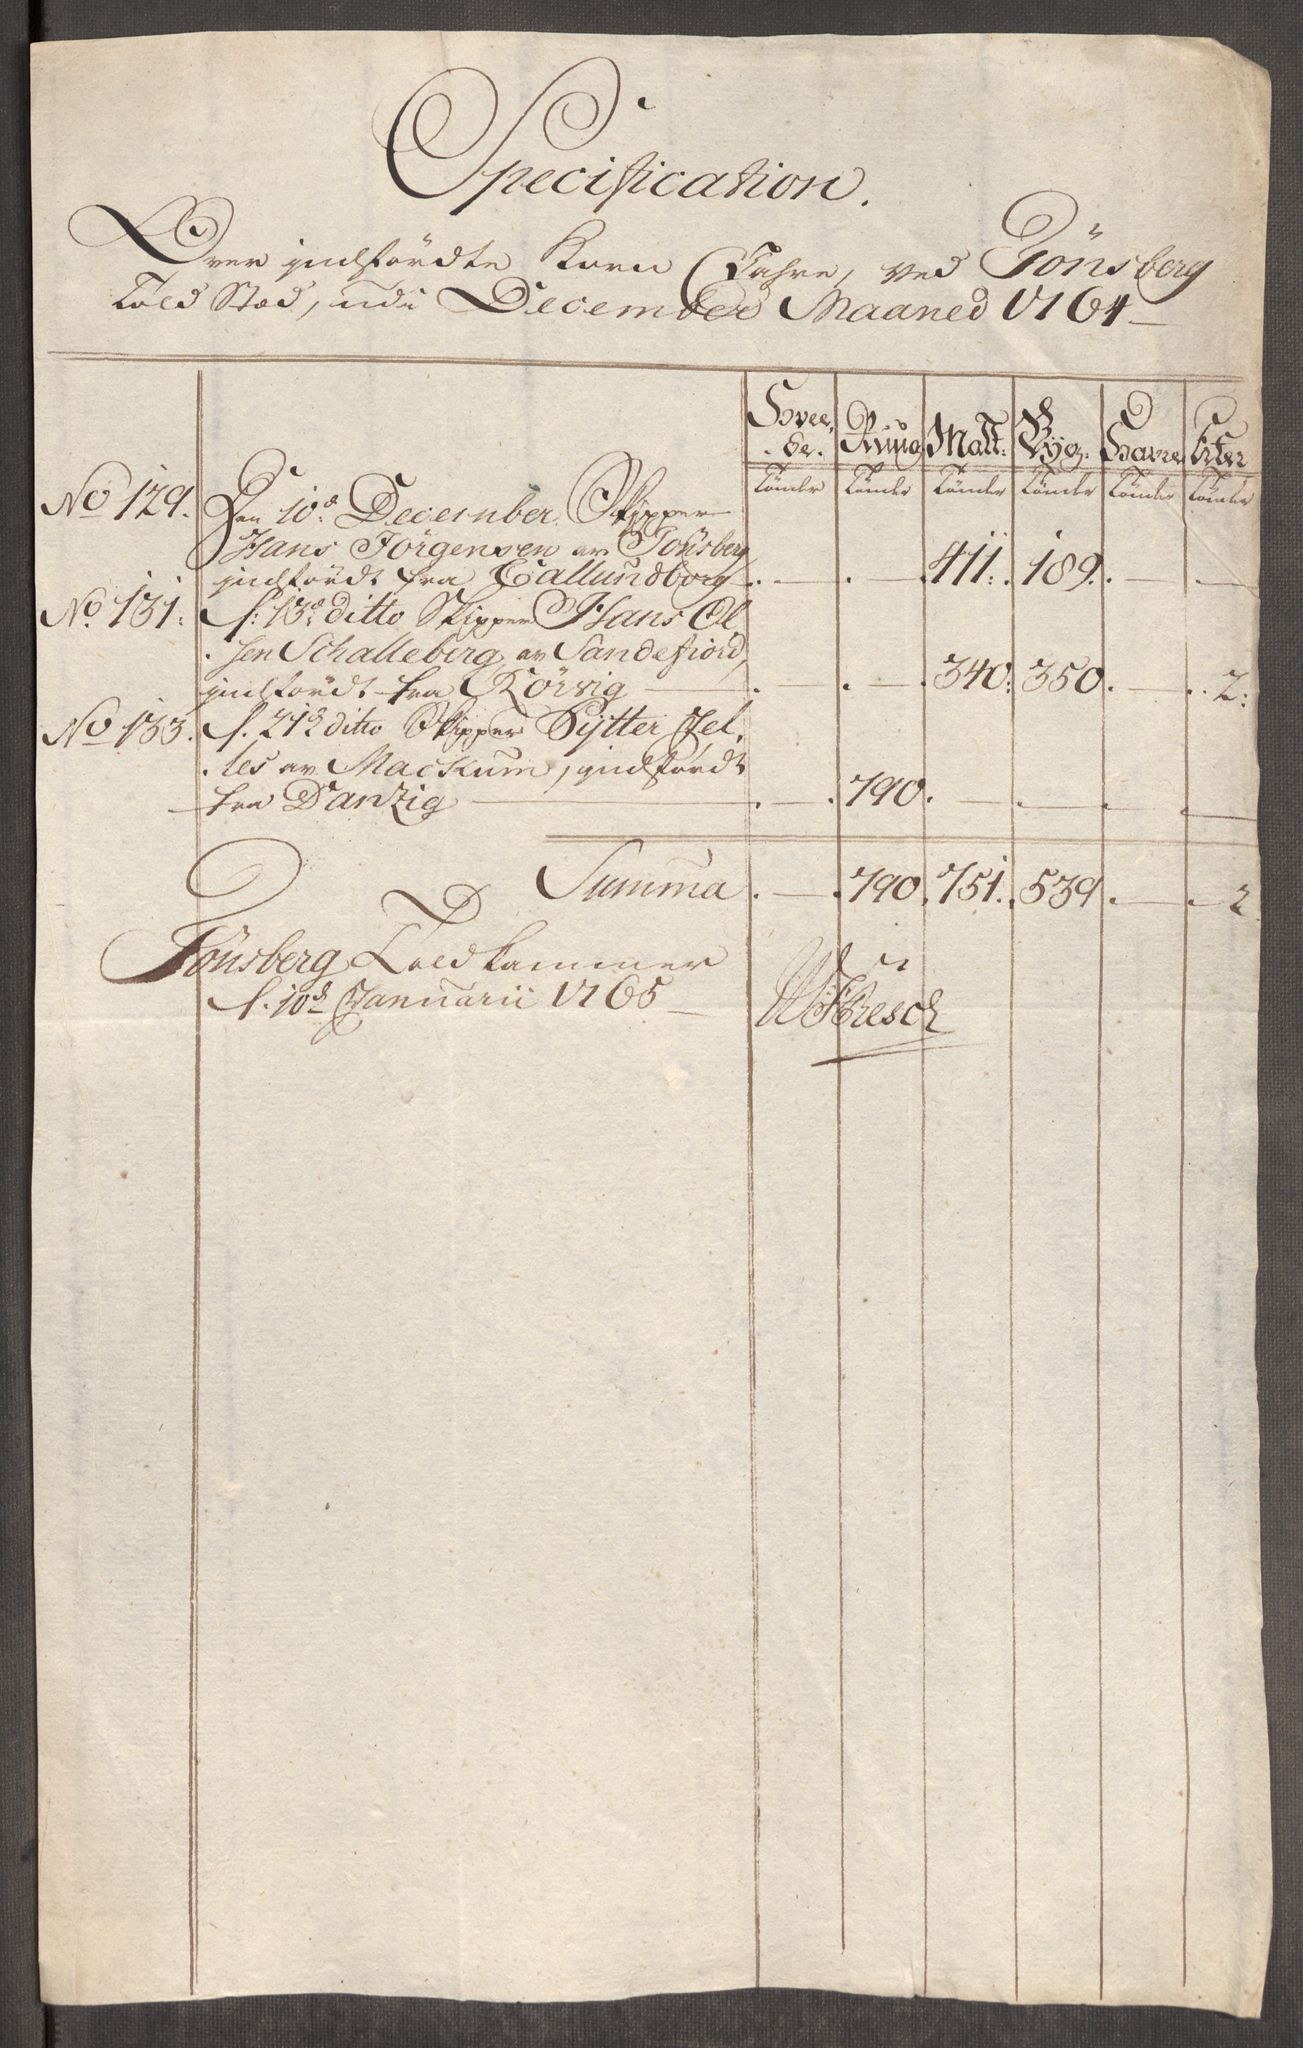 Specification.
Over indfördte Korn Vahre, ved Tönsberg
Told Stæd, udi December Maaned 1764
Hvee, Rüug Malt: Byg. Havre Erter
de.
Tönder Tönder Tönder Tönder Tönder Tönder
No 129. Den 10d December Skipper
Hans Jörgensen av Tönsberg
indfördt fra Callundborg . — . — . 411 : . 189 . . — —
No. 131: d: 13d ditto Skipper Hans Ol
. sen Schalleberg av Sandefiord,
indfördt fra Rörvig — . . — . 340 : 350 . . — . . 2 :
No 133. d. 21d ditto Skipper Sytter Jel,
. les av Mackum, indfördt
fra Danzig — . — . 790 . — . — . — . —
Summa . — . 790 . 751 . . 539 . — . — 2
Tönsberg Told Kammer
d. 10d Januarii 1765